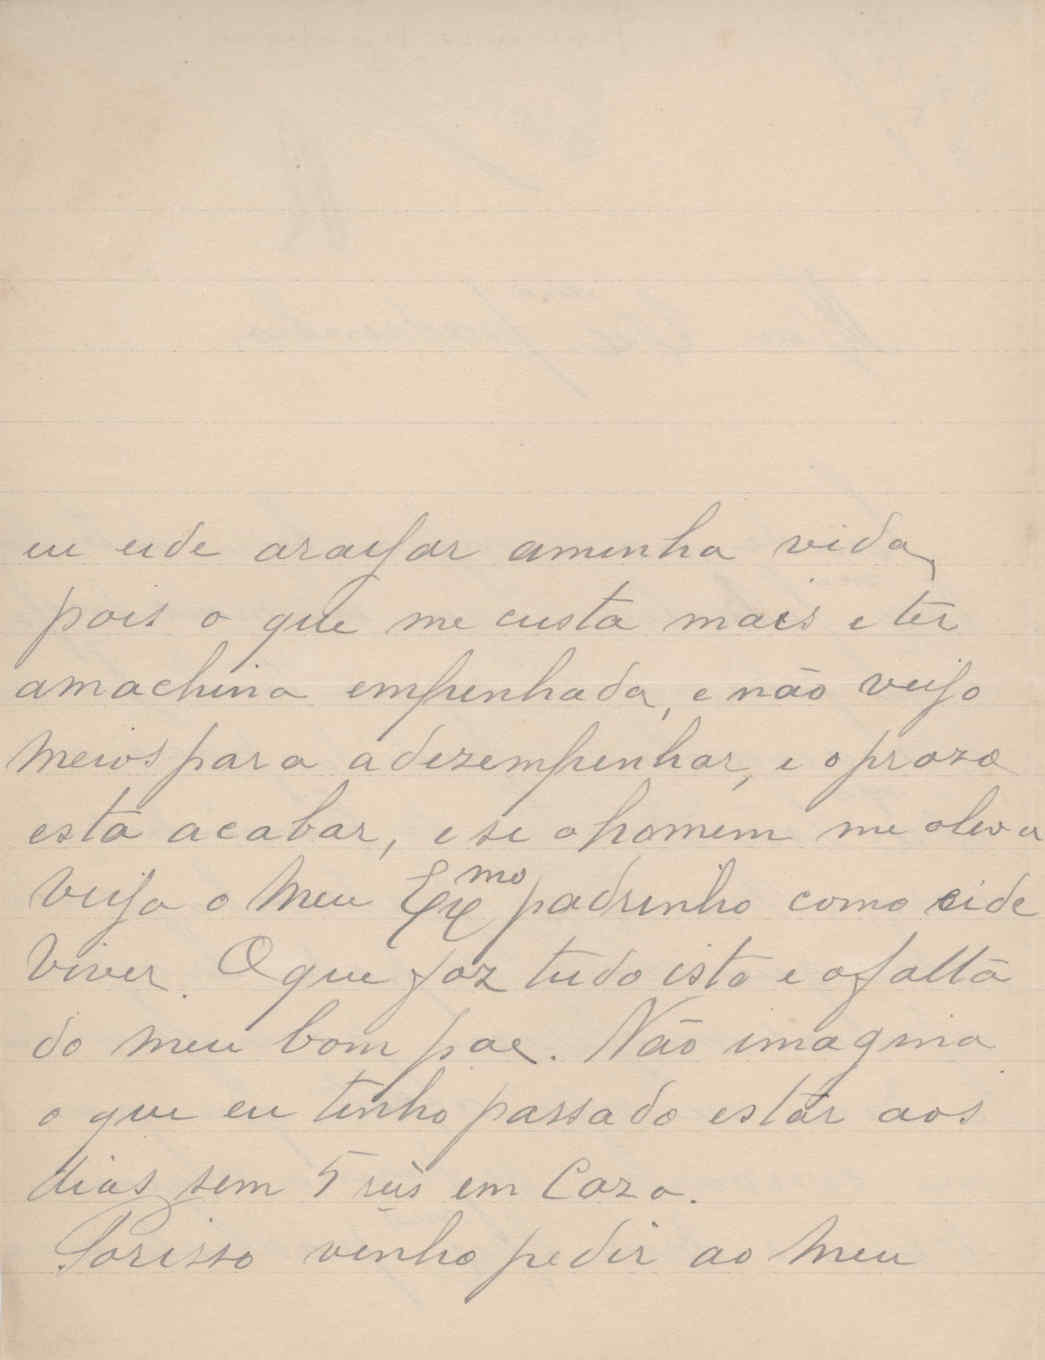 eu eide araijar aminha vida,
pois o que me custa mais e ter
amachina empenhada, e não veijo
meios para adezempenhar, e oprazo
esta acabar, e se ohomem me aleva
veija o meu Exmo padrinho como eide
viver. Oque faz tudo isto e afalta
do meu bom pae. Não imagina
o que eu tenho passado estár aos
dias sem 5 reis em Caza.
Porisso venho pedir ao meu